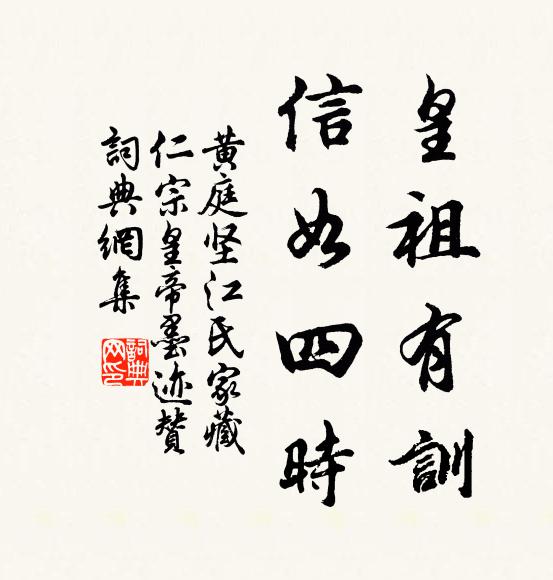 皇祖有訓
信如四時
黃庭坚江氏家藏
仁宗皇帝墨迹贊
詞典網集
詞典
网印